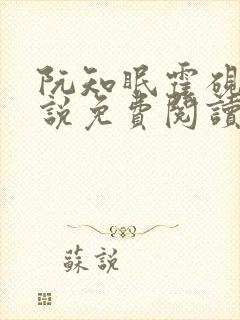 阮知眠霍硯
説免費閱讀
蘇説